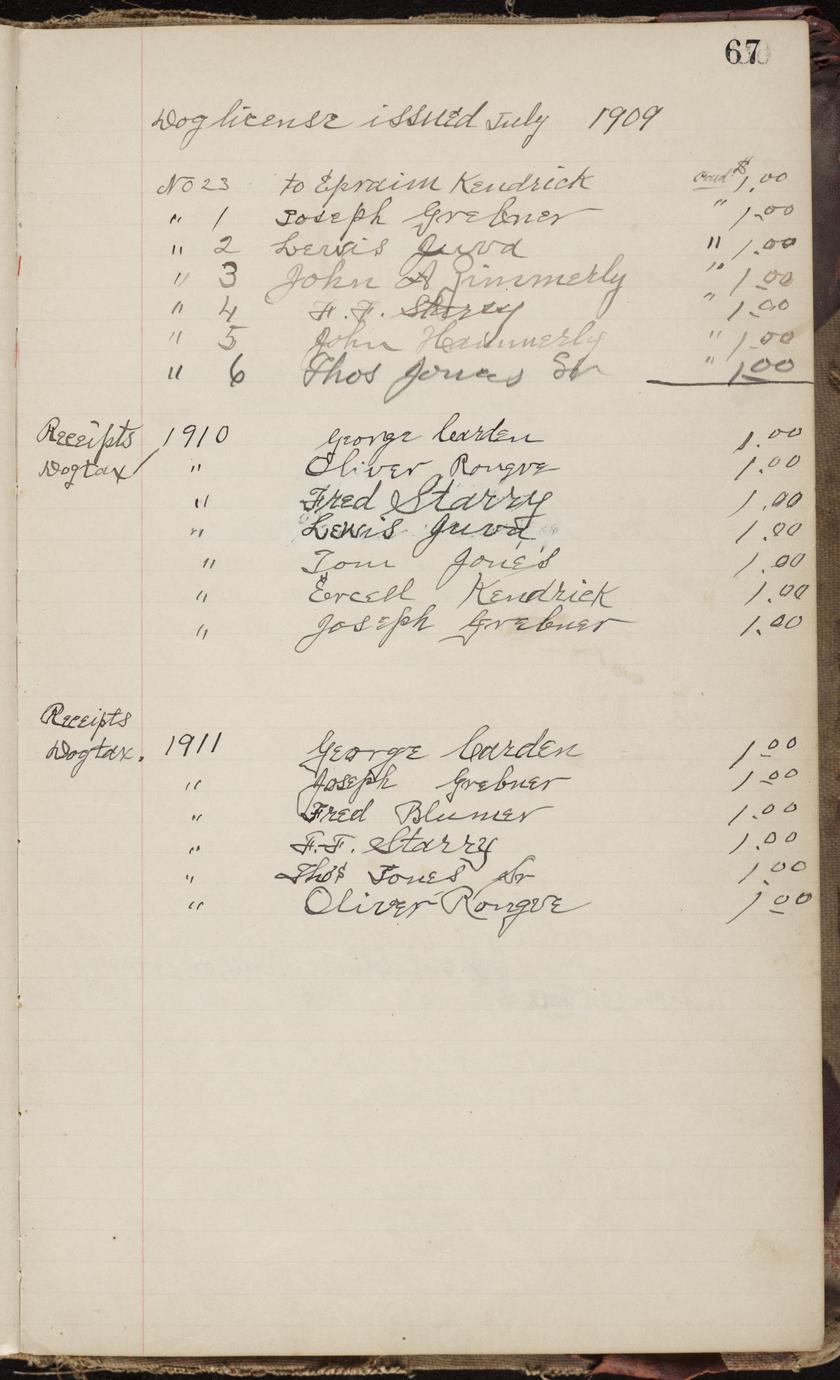 67
Dog license issued July 1909
No 23 to Epraim Kendrick Paid $1.00
" 1 Joseph Grebner " 1.00
" 2 Lewis Juvd " 1.00
" 3 John A Zimmerly " 1.00
" 4 F. F. Starry " 1.00
" 5 John Hammerly " 1.00
" 6 Thos Jones Sr " 1.00
Receipts 1910 George Carden 1.00
Dogtax " Oliver Rongve 1.00
" Fred Starry 1.00
" Lewis Juvd 1.00
" Tom Jone's 1.00
" Ercell Kendrick 1.00
" Joseph Grebner 1.00
Receipts
Dogtax. 1911 George Carden 1.00
" Joseph Grebner 1.00
" Fred Blumer 1.00
" F.F. Starry 1.00
" Thos Jones Sr 1.00
" Oliver Rongve 1.00